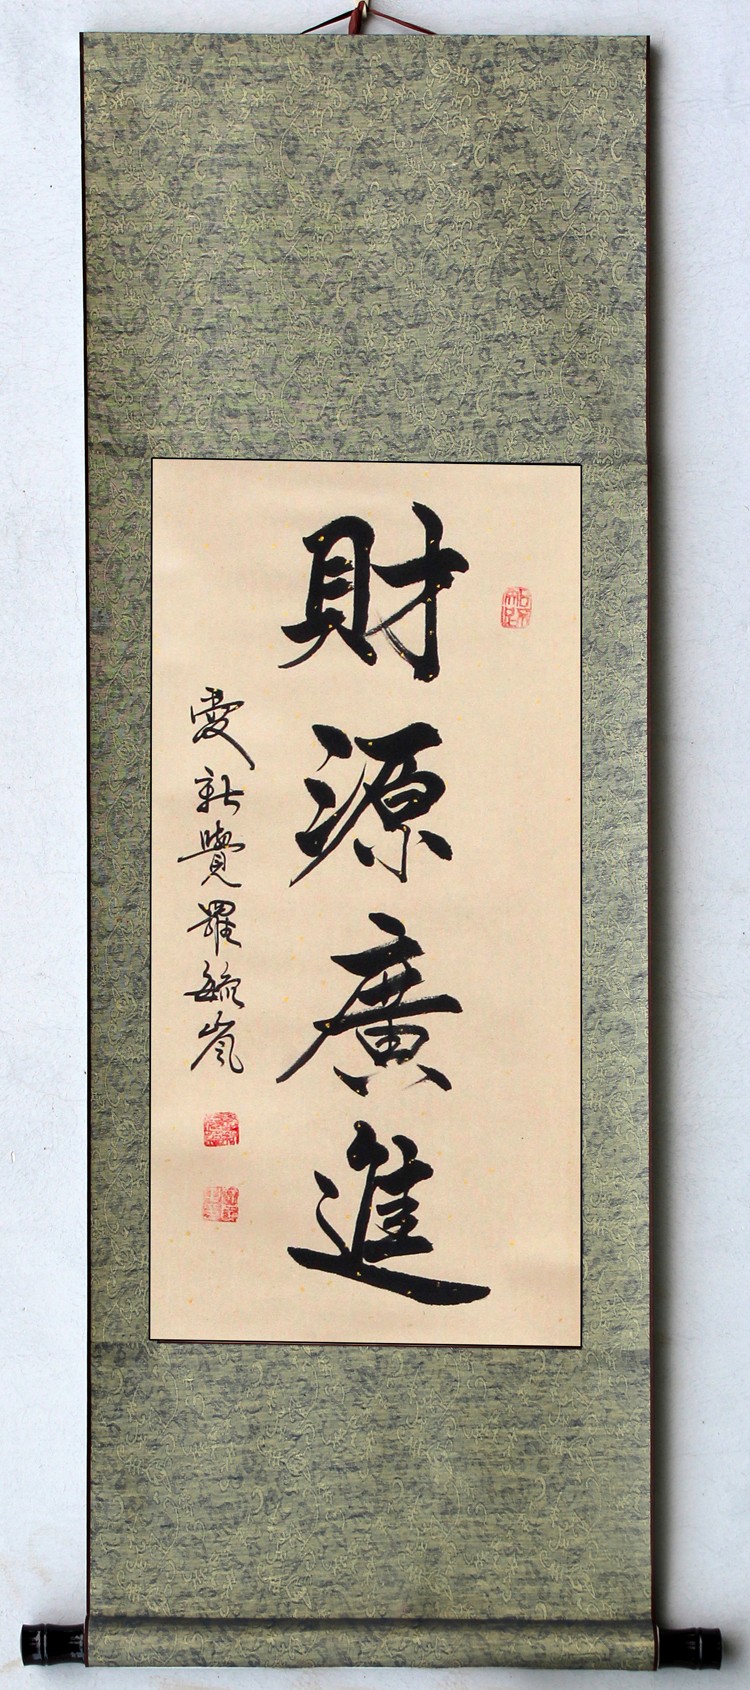 財源廣進
愛新覺羅毓嵐